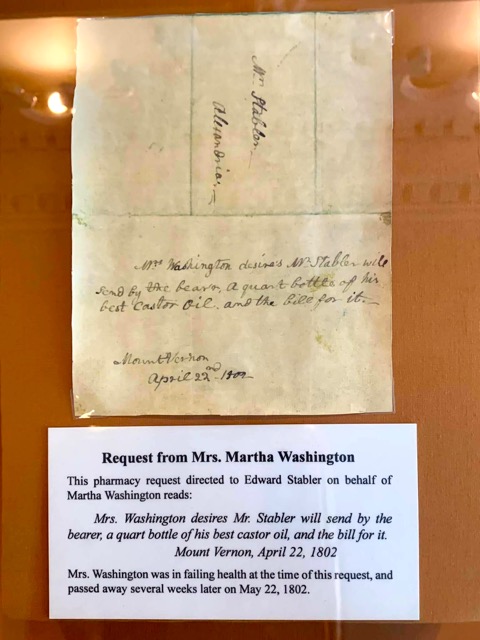 Mr. Stabler
Alexandria.
Mrs. Washington desires Mr. Stabler will
send by the bearer, a quart bottle of his
best Castor Oil, and the bill for it.
Mount Vernon
April 22nd 1802
Request from Mrs. Martha Washington
This pharmacy request directed to Edward Stabler on behalf of
Martha Washington reads:
Mrs. Washington desires Mr. Stabler will send by the
bearer, a quart bottle of his best castor oil, and the bill for it.
Mount Vernon, April 22, 1802
Mrs. Washington was in failing health at the time of this request, and
passed away several weeks later on May 22, 1802.